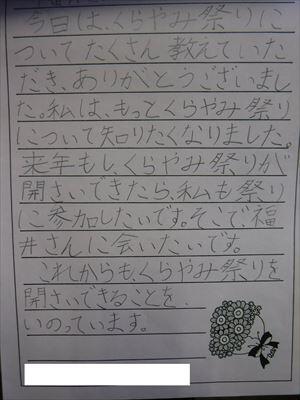 今日は、くらやみ祭りに
ついてたくさん教えていた
だき、ありがとうございまし
た。私は、もっとくらやみ祭り
について知りたくなりました。
来年もしくらやみ祭りが
開さいできたら、私も祭り
に参加したいです。そこで、福
井さんに会いたいです。
これからも、くらやみ祭りを
開さいできることを、
いのっています。